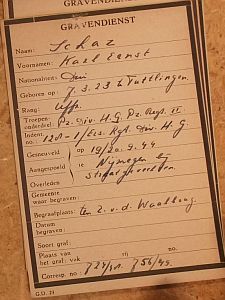 GRAVENDIENST
GRAVENDIENST
Naam: Schaz
Voornamen: Karl Ernst
Nationaliteit: Dui
Geboren op: 7.3.23 te Tuttlingen
Rang: Uffz.
Troepen-
onderdeel: Pz. Div. H.G. Pz. Regt. II
Ident.
no.: 128-1/Ers. Rgt. Div. H.G.
Gesneuveld op 19/20.9.44
Aangespoeld te: Nijmegen bij
Overleden
Gemeente
waar begraven:
Begraafplaats: ten Z. v.d. Waalbrug
Datum
begraven:
Soort graf:
Plaats van
het graf: vak no.
Corresp. no: 724/ 756/49.
G.D. 21